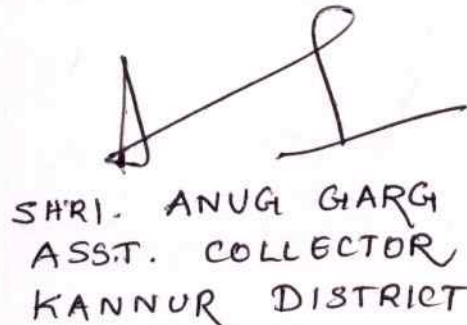 SHRI. ANUG GARG
ASST. COLLECTOR
KANNUR DISTRICT